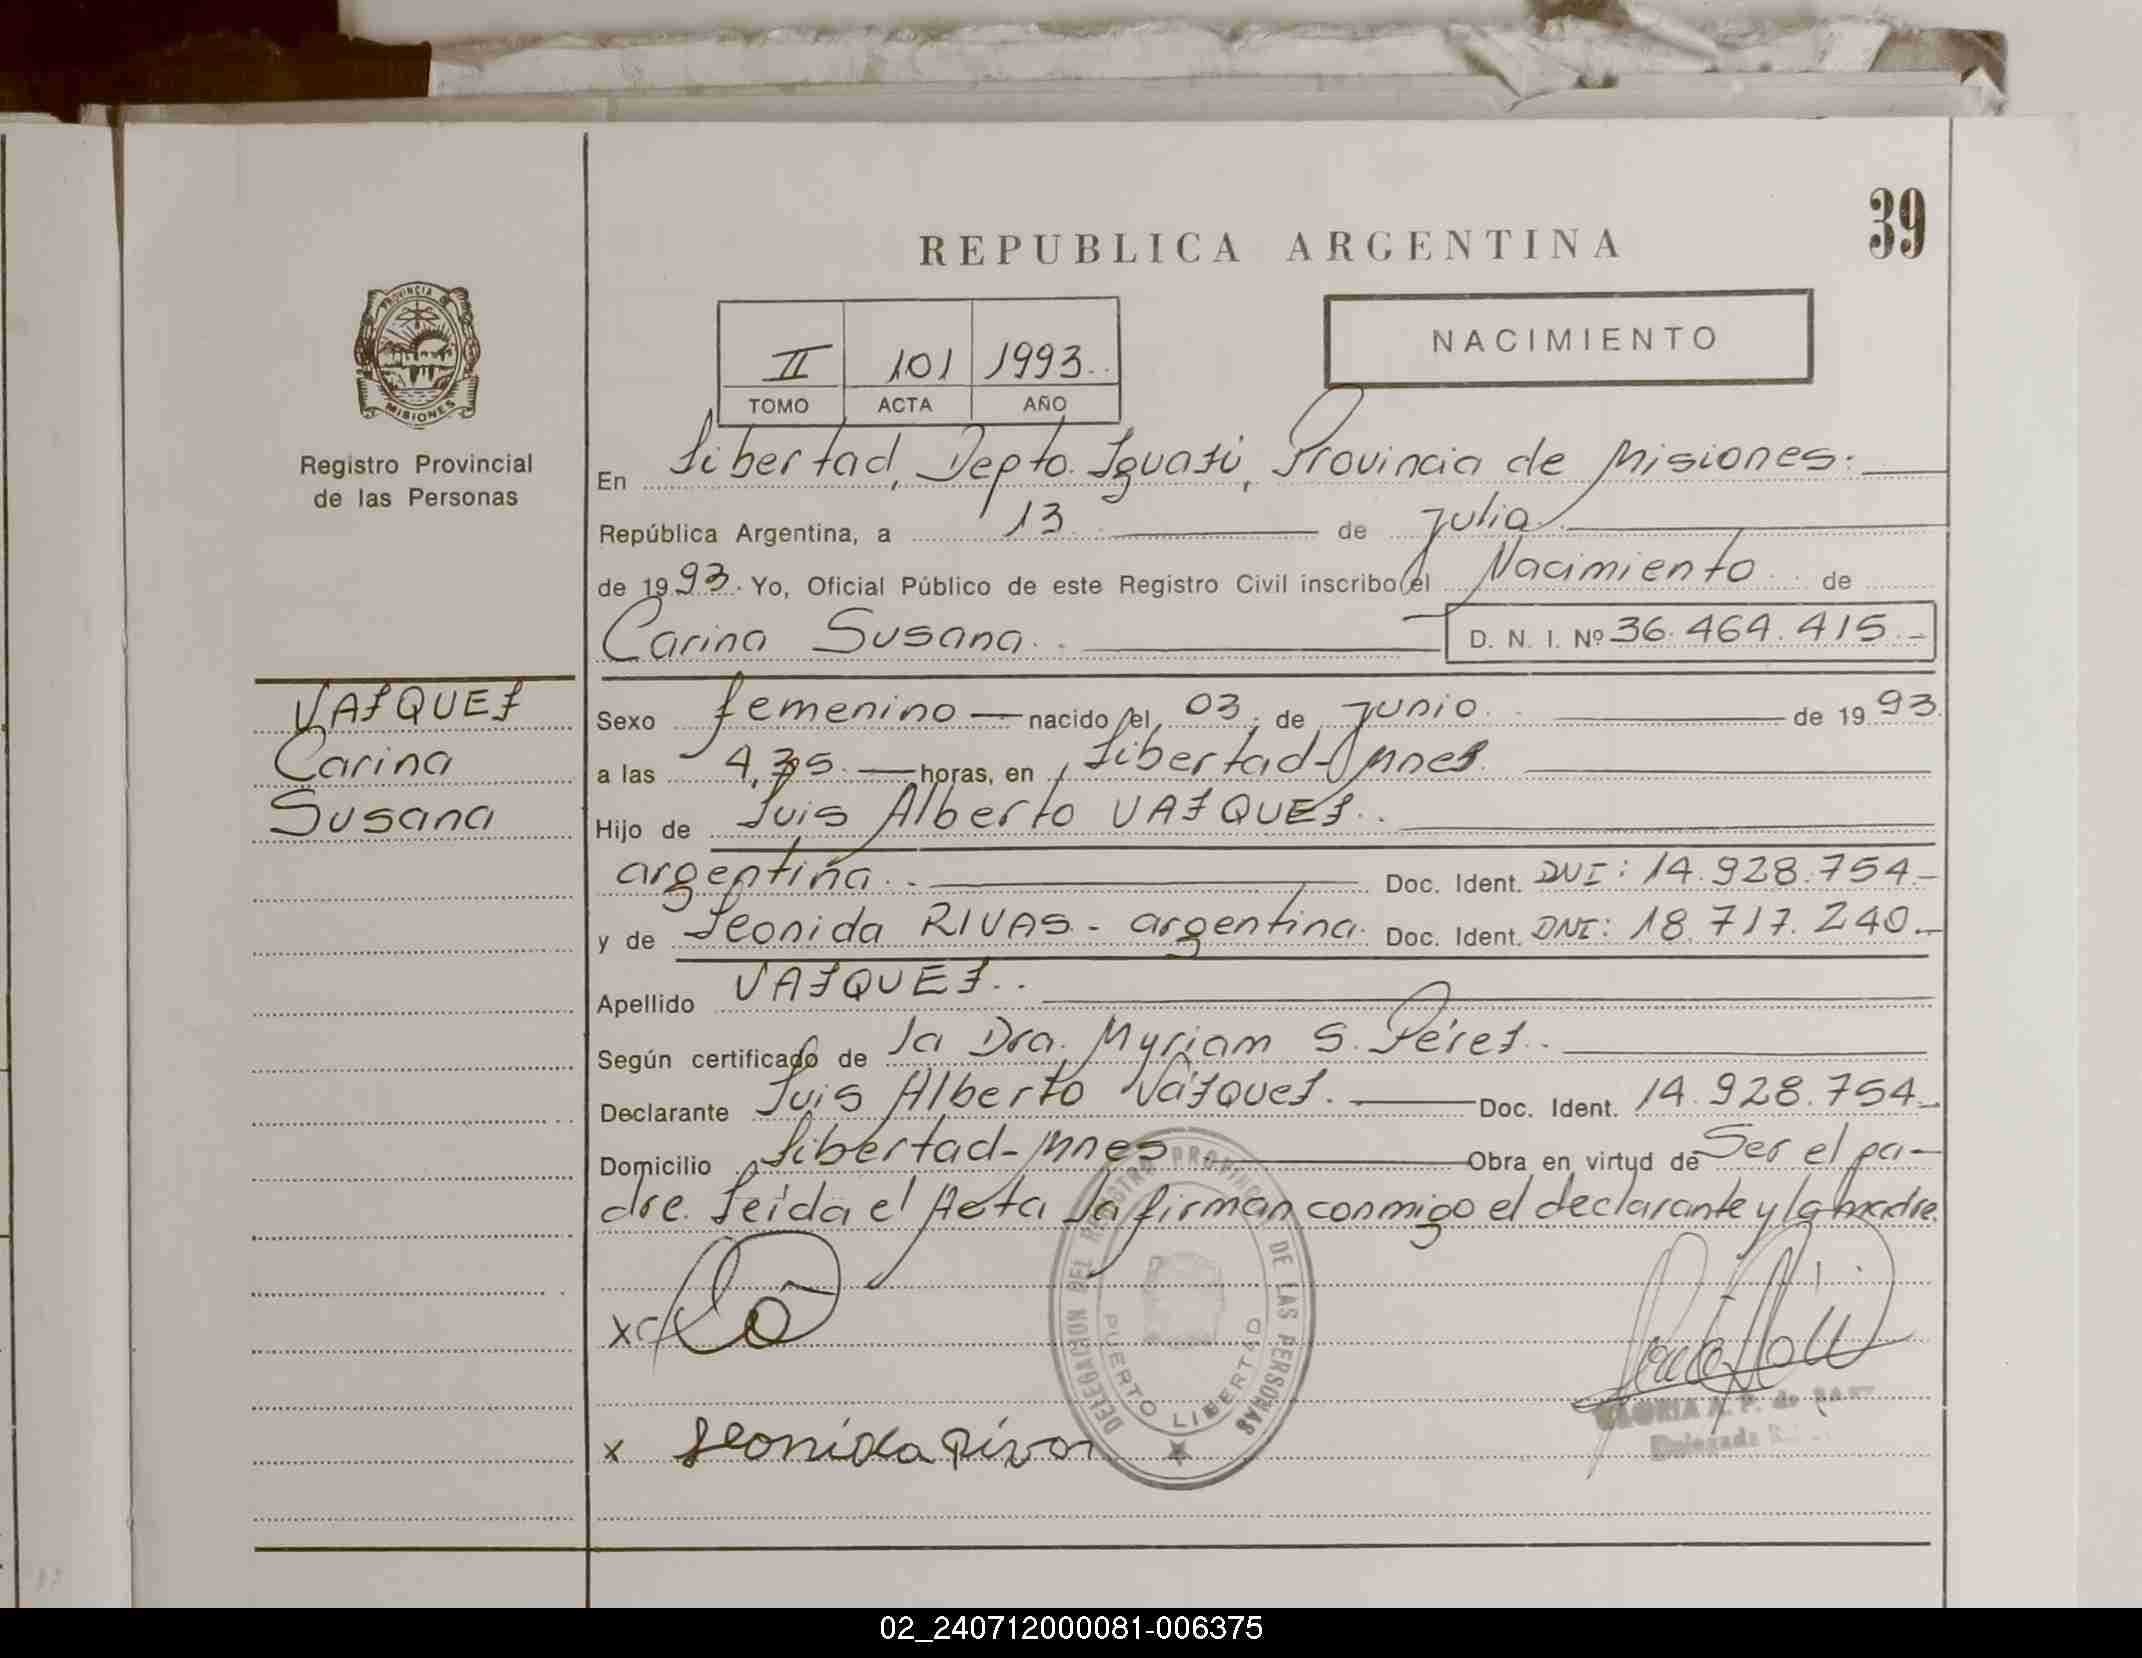 39
REPUBLICA ARGENTINA
PROVINCIA DE
MISIONES
Registro Provincial
de las Personas
II 101 1993
TOMO ACTA AÑO
NACIMIENTO
En Libertad, Depto. Iguazú, Provincia de Misiones.
República Argentina, a 13 de julio
de 1993. Yo, Oficial Público de este Registro Civil inscribo el Nacimiento de
Carina Susana. D. N. I. Nº 36.464.415.-
VAZQUEZ
Carina
Susana
Sexo femenino nacido el 03 de junio de 1993
a las 4,35 horas, en Libertad-Mnes.
Hijo de Luis Alberto VAZQUEZ.
argentina. Doc. Ident. DNI: 14.928.754.-
y de Leonida RIVAS - argentina. Doc. Ident. DNI: 18.717.240.-
Apellido VAZQUEZ.
Según certificado de la Dra. Myriam S. Pérez.
Declarante Luis Alberto Vázquez. Doc. Ident. 14.928.754.-
Domicilio Libertad-Mnes Obra en virtud de Ser el pa-
dre. Leída el Acta la firman conmigo el declarante y la madre.
DELEGACION DEL REGISTRO PROVINCIAL DE LAS PERSONAS
PUERTO LIBERTAD
x
GLORIA A. P. de
Delegada
x Leonida Rivas
02_240712000081-006375